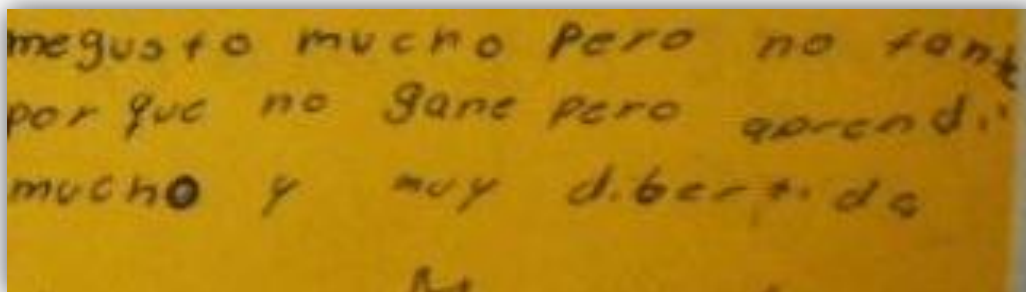 megusto mucho pero no tant
por que no gane pero aprendi
mucho y muy dibertida